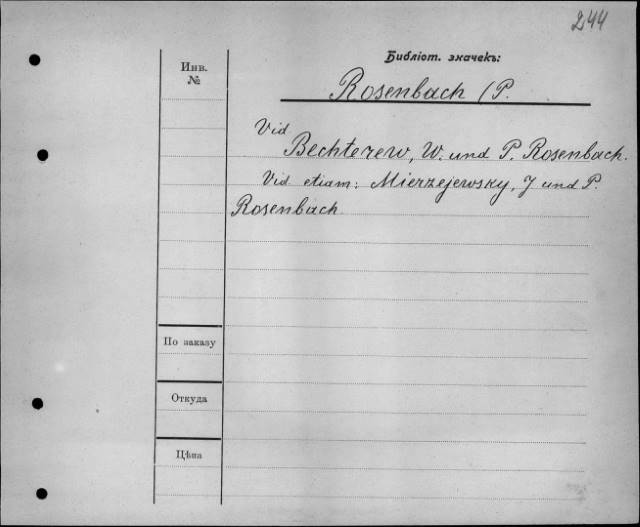 244
Библіот. значекъ:
Инв.
№
Rosenbach (P.
Vid
Bechterew, W. und P. Rosenbach.
Vid etiam: Mierzejewsky, J und P.
Rosenbach.
По заказу
Откуда
Цѣна